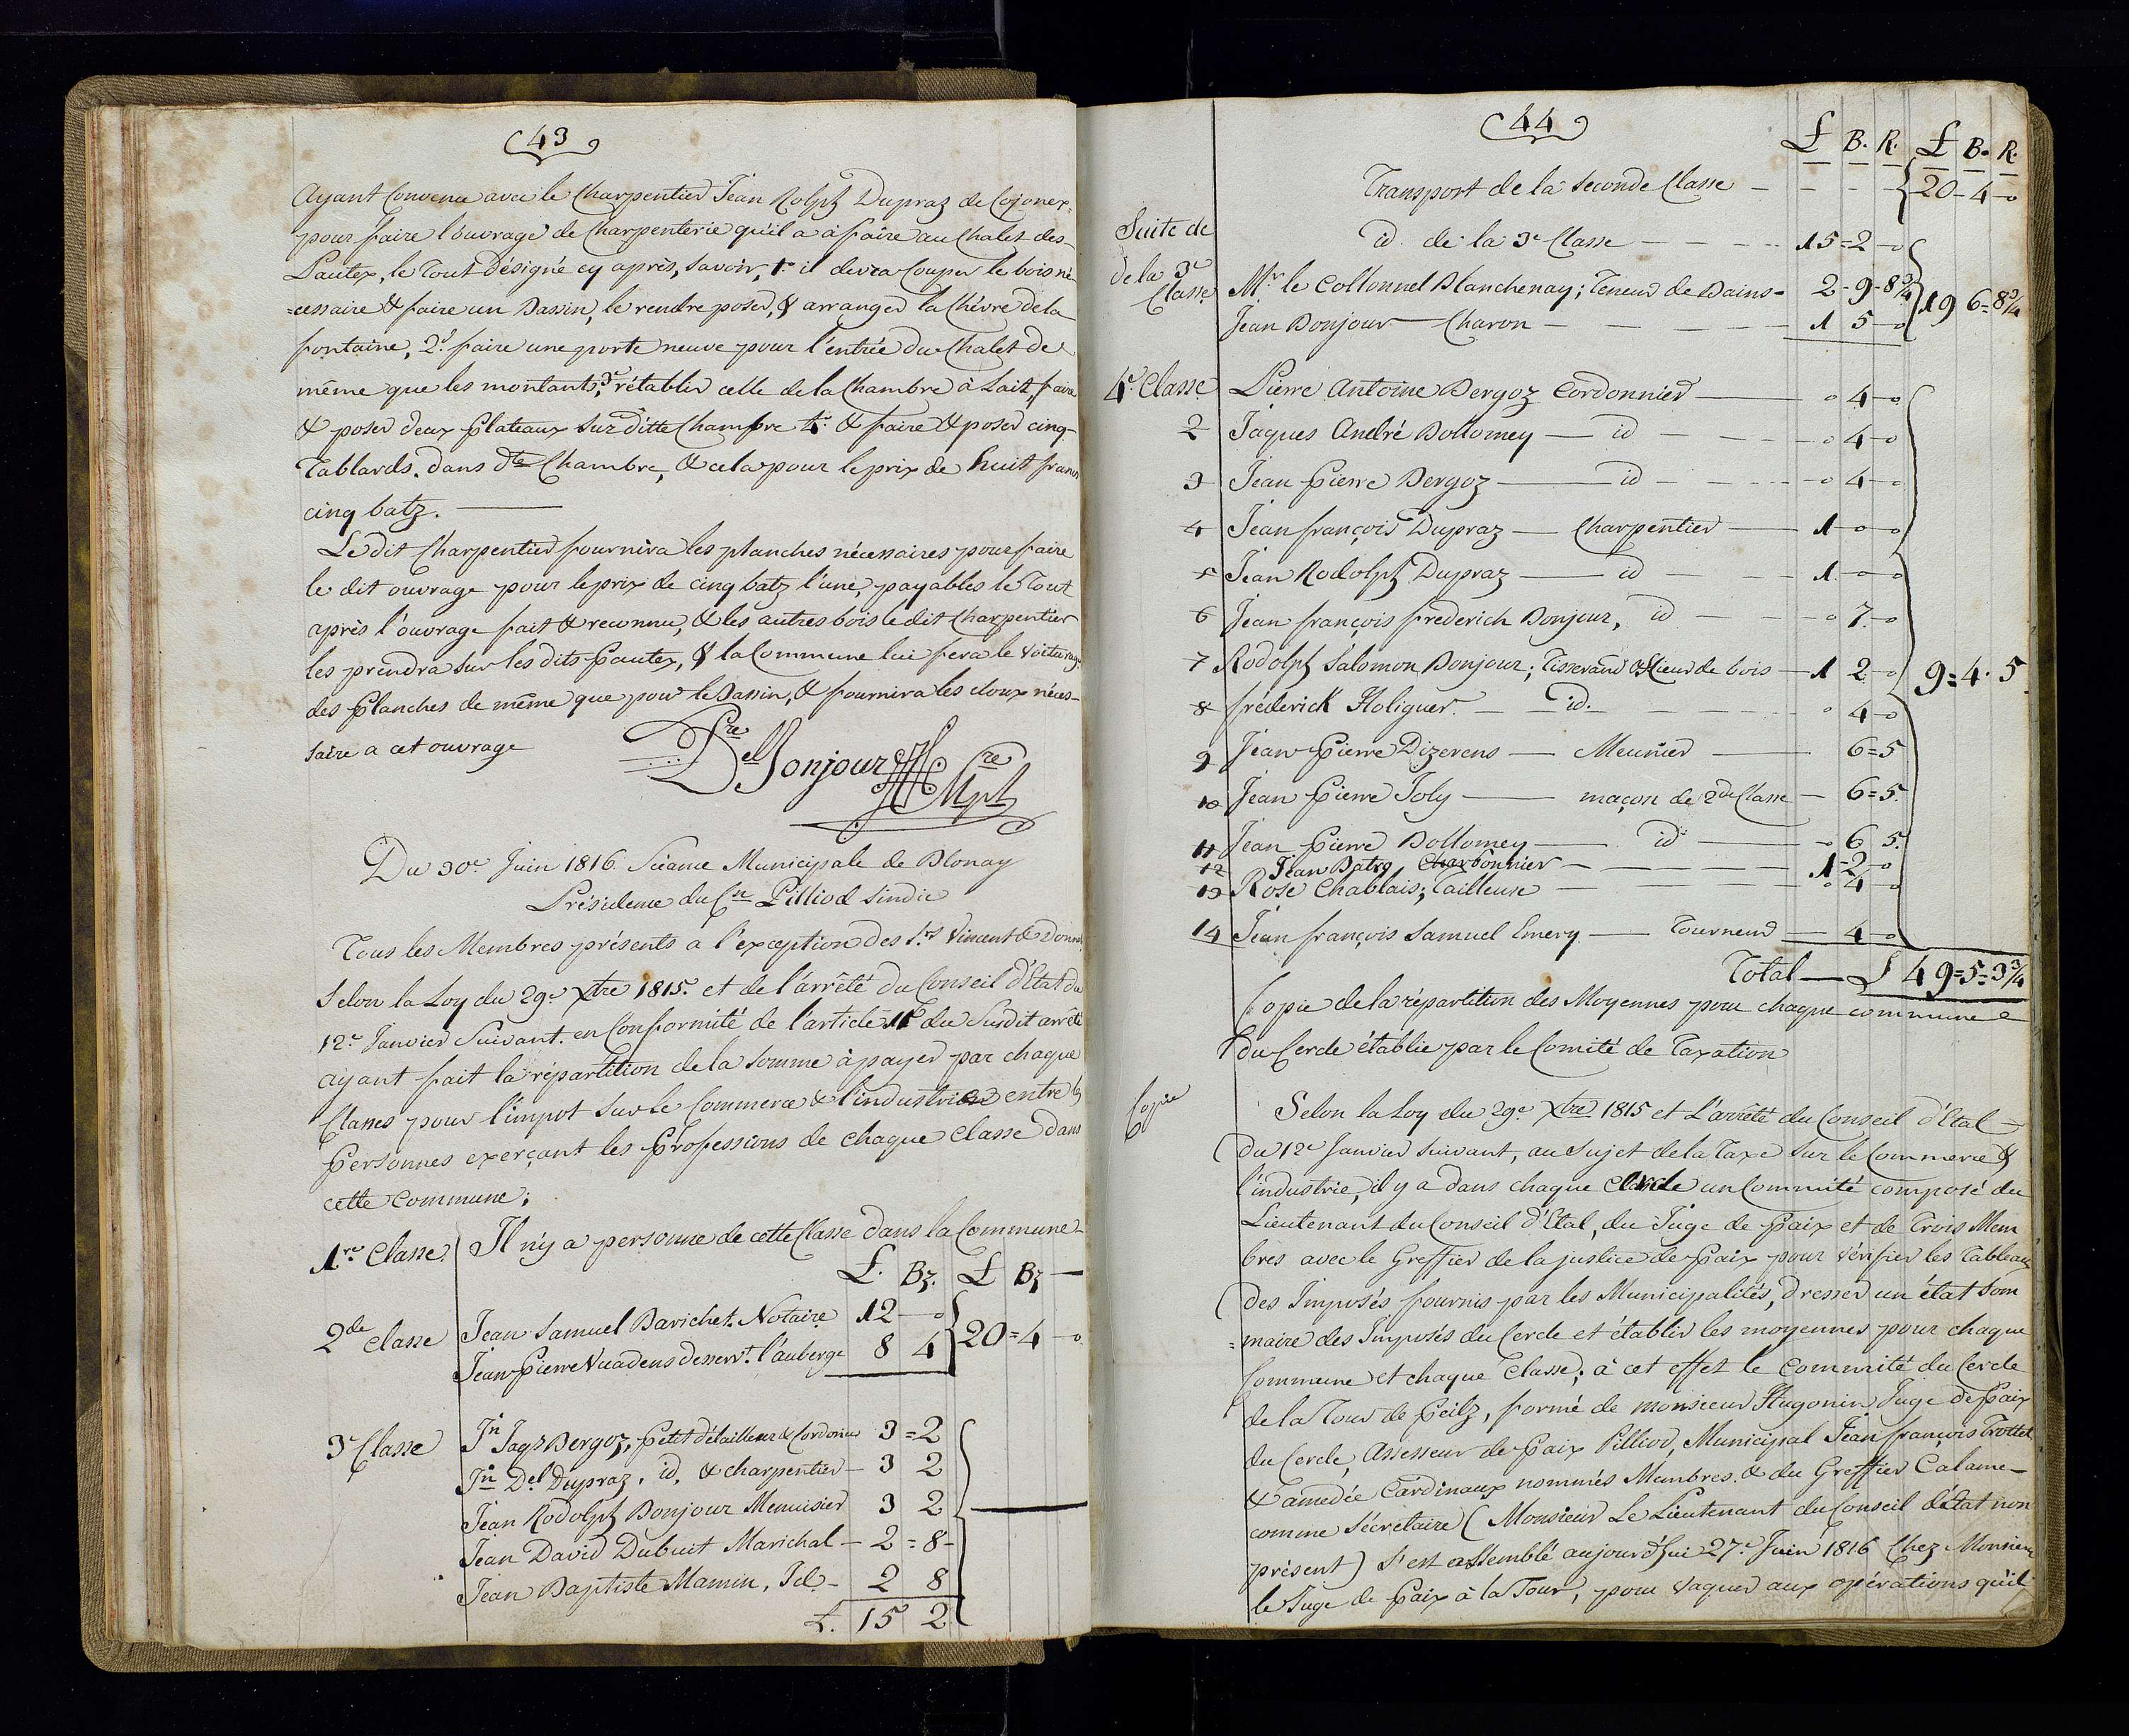 43
Ayant Convenu avec le Charpentier Jean Rolph Dupraz de Cojonex
pour faire l'ouvrage de Charpenterie qu'il a à faire au Chalet des
Pautex, le Tout désigné cy après, Savoir, 1° il devra Couper le bois né-
=cessaire & faire un Bassin, le rendre poser, & arranger la Chèvre de la
fontaine, 2° faire une porte neuve pour l'entrée du Chalet de
même que les montants, 3° rétablir celle de la Chambre à Lait, faire
& poser deux Plateaux Sur ditte Chambre 4° & faire & poser cinq
Tablards. dans dte Chambre, & cela pour le prix de huit francs
cinq batz.
Le dit Charpentier fournira les planches nécessaires pour faire
le dit ouvrage pour le prix de cinq batz l'une, payables le Tout
après l'ouvrage fait & reconnu, & les autres bois le dit Charpentier
les prendra sur les dits Pautex, & la Commune lui fera le Voiturage
des Planches de même que pour le Bassin, & fournira les cloux néces-
saire a cet ouvrage
Del Bonjour Sre Mpl
Du 30e Juin 1816 Séance Municipale de Blonay
Présidence du Cn Pilliod Sindic
Tous les Membres présents a l'exception des Srs Vincent & Bonn
Selon la Loy du 29e Xtre 1815. et de l'arrêté du Conseil d'Etat du
12e Janvier Suivant. en Conformité de l'article 11e du Susdit arrêté
ayant fait la répartition de la Somme à payer par chaque
Classes pour l'impot Sur le Commerce & l'industrie entre les
Personnes exerçant les Professions de chaque Classe dans
cette Commune;
1re Classe. Il n'y a personne de cette Classe dans la Commune
£. Bz. £ Bz
2de Classe Jean Samuel Barichet Notaire 12 — 0
Jean Pierre Vuadens desservt l'auberge 8 4 20=4—0
3e Classe Jn Jaqs Bergoz, Petit détailleur & Cordonier 3=2
Jn Del Dupraz, id, & charpentier — 3 2
Jean Rodolph Bonjour Menuisier 3 2
Jean David Dubuit Marichal — 2=8-
Jean Baptiste Mamin, Id — 2 8
£. 15 2
44
£ B. R. £ B. R.
Transport de la Seconde Classe — 20-4-0
Suite de
de la 3e
Classe
id. de la 3e Classe — 15=2-0
Mr le Collonnel Blanchenay; Teneur de Bains - 2-9-8 3/4 19 6=8 3/4
Jean Bonjour — Charon — 1 5-0
4e Classe Pierre Antoine Bergoz Cordonnier — 0 4-0
2 Jaques André Bollomey — id — 0 4-0
3 Jean Pierre Bergoz — id — 0 4-0
4 Jean françois Dupraz — Charpentier — 1-0-0
5 Jean Rodolph Dupraz — id — 1-0-0
6 Jean françois frederich Bonjour, id — 0 7-0
7 Rodolph Salomon Bonjour; Tisserand & Scieur de bois — 1 2-0 9=4.5
8 fréderick Holiguer. — id. — 0 4-0
9 Jean Pierre Dizerens — Meunier — 6=5
10 Jean Pierre Joly — maçon de 2de Classe — 6=5.
11 Jean Pierre Bollomey — id — 0 6 5.
12 Jean Batz, Charbonnier — 1-2-0
13 Rose Chablais; Tailleuse — 0 4-0
14 Jean françois Samuel Emery — Tourneur — 4-0
Total — £ 49=5=3 3/4
Copie de la répartition des Moyennes pour chaque commune
du Cercle établie par le Comité de Taxation
Copie
Selon la Loy du 29e Xtre 1815 et L'arrêté du Conseil d'Etat
du 12e Janvier suivant, au Sujet de la Taxe Sur le Commerce &
l'industrie, il y a dans chaque Cercle un Committé composé du
Lieutenant du Conseil d'Etat, du Juge de Paix et de Trois Mem
bres avec le Greffier de la justice de Paix pour Vérifier les Tableaux
des Imposés fournis par les Municipalités, dresser un état Som
=maire des Imposés du Cercle et établir les moyennes pour chaque
Commune et chaque Classe; à cet effet le Committé du Cercle
de la Tour de Peilz, formé de monsieur Hugonin Juge de Paix
du Cercle, Assesseur de Paix Pilliod, Municipal Jean françois Trottet
& amedée Cardinaux nommés Membres. & du Greffier Calame
comme Sécretaire (Monsieur Le Lieutenant du Conseil d'Etat non
présent) S'est assemblé aujourd'hui 27e Juin 1816 Chez Monsieur
le Juge de Paix à la Tour, pour Vaquer aux opérations qu'il